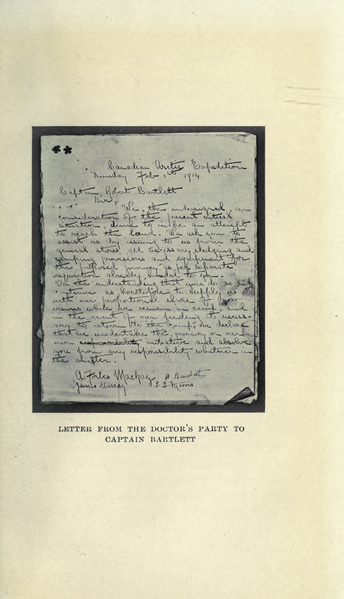 Canadian Arctic Expedition
Sunday Feb. 1st 1914
Captain Robert Bartlett
Sir
We, the undersigned, in
consideration of the present critical
situation, desire to make an attempt
to reach the land. We ask you to
assist us by issuing to us from the
general stores all necessary sledging and
camping provisions and equipment for
the proposed journey as per separate
requisition already handed to you.
On the understanding that you do so and
continue as heretofore to supply us
with our proportional share of
while we remain in camp, and
in the event of our finding it neces-
sary to return to the camp, we declare
that we undertake the journey on our
own initiative and absolve
you from any responsibility whatever in
the matter.
A. Forbes Mackay H. Beuchat
James Murray
LETTER FROM THE DOCTOR'S PARTY TO
CAPTAIN BARTLETT